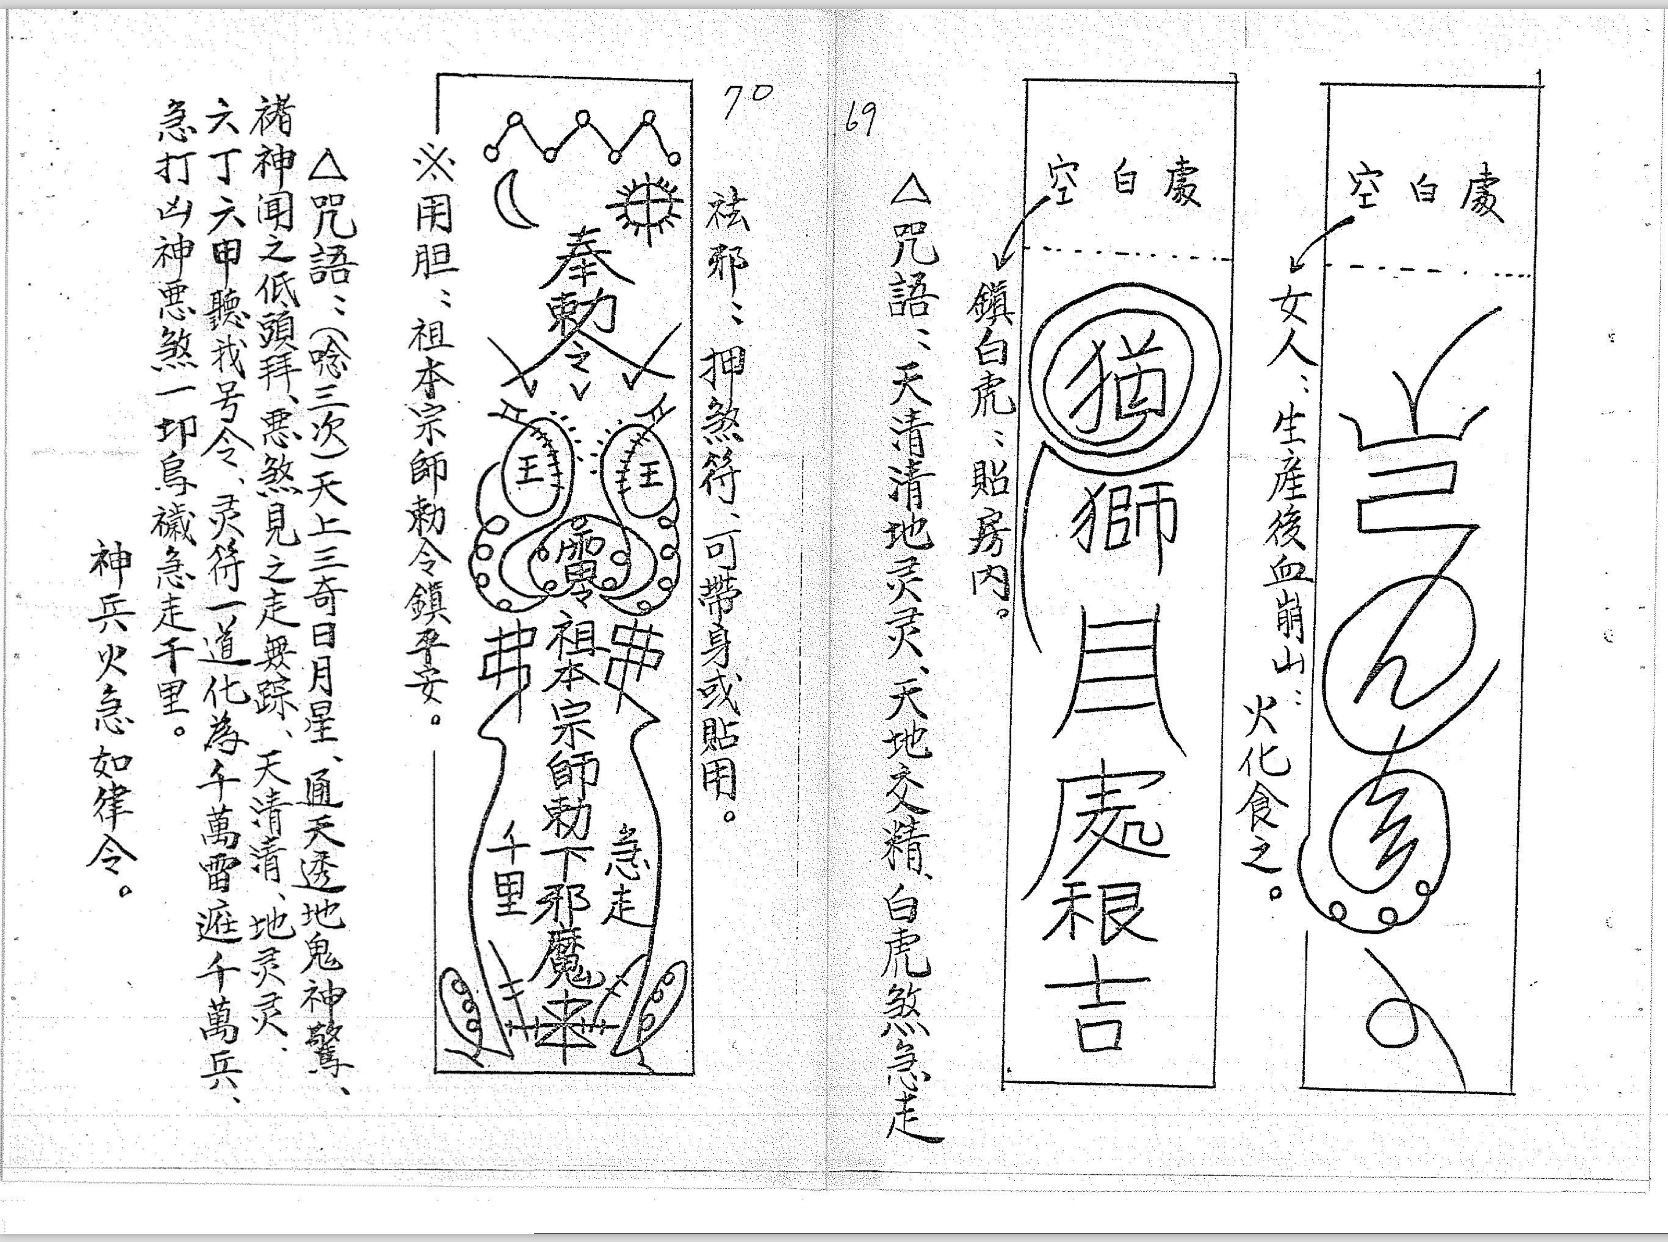 空白處
女人：生產後血崩山：
火化食之。
空白處
鎮白虎：貼房内。
猶
獅
月
處
根
吉
△咒語：天清清地灵灵、天地交精、白虎煞急走
69
70
袪邪：押煞符、可帶身或貼用。
奉
勅
令
王 王
靈
祖本宗師勅下邪魔来
急走
千里
※用胆：祖本宗師勅令鎮平安。
△咒語：(唸三次)天上三奇日月星、通天透地鬼神驚、
褚神闻之低頭拜、悪煞見之走無踪、天清清、地灵灵、
六丁六甲聽我号令、灵符一道化為千萬雷遮千萬兵、
急打凶神悪煞一切烏穢急走千里。
神兵火急如律令。